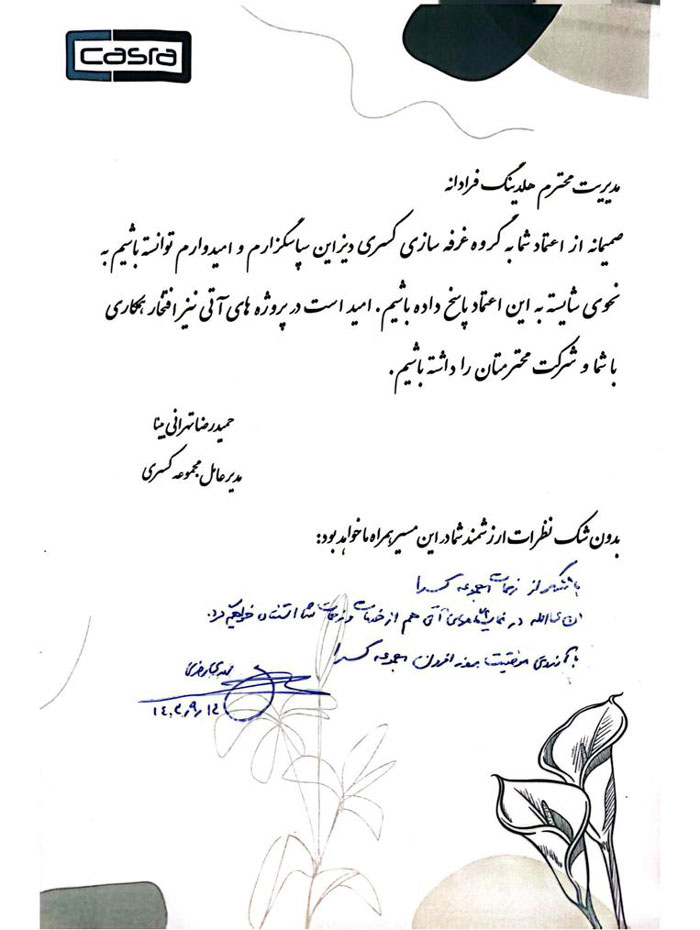 casra
مدیریت محترم هلدینگ فرادانه
صمیمانه از اعتماد شما به گروه غرفه سازی کسری دیزاین سپاسگزارم و امیدوارم توانسته باشیم به
نحوی شایسته به این اعتماد پاسخ داده باشیم. امید است در پروژه های آتی نیز افتخار همکاری
با شما و شرکت محترمتان را داشته باشیم.
حمیدرضا تهرانی مینا
مدیرعامل مجموعه کسری
بدون شک نظرات ارزشمند شما در این مسیر همراه ما خواهد بود:
با تشکر از زحمات مجموعه کسرا
ان شاالله در نمایشگاه های آتی هم از خدمات و زحمات شما استفاده خواهیم کرد.
با آرزوی موفقیت روز افزون مجموعه کسرا
۱۴۰۲/۹/۱۲